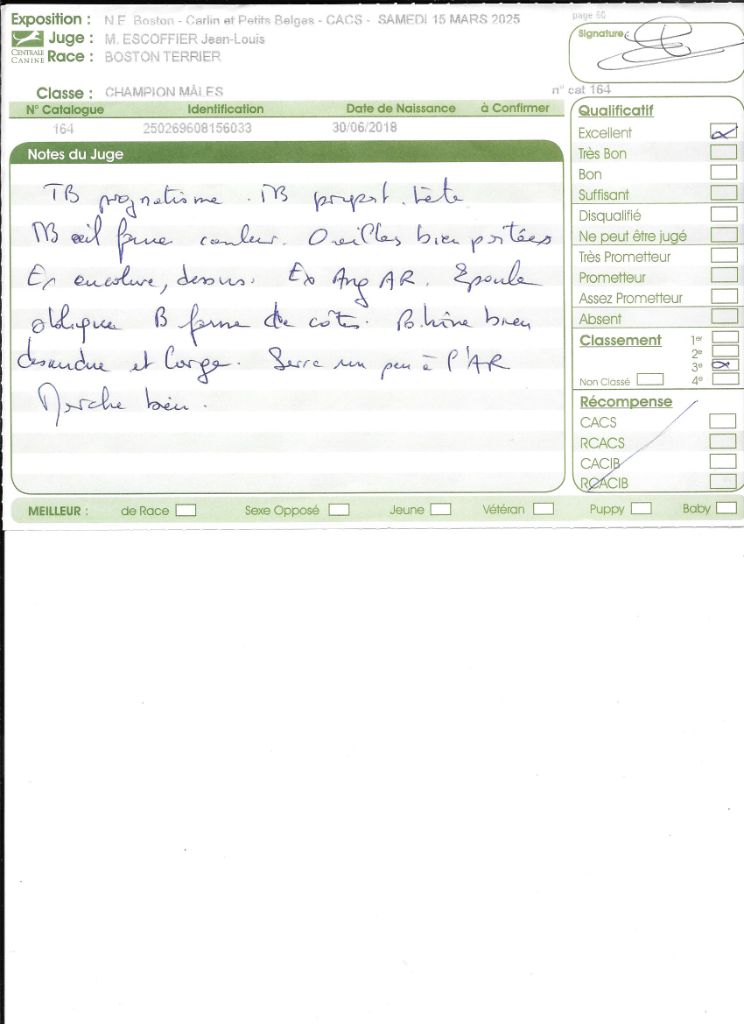 Exposition : N.E Boston - Carlin et Petits Belges - CACS - SAMEDI 15 MARS 2025
page 60
CENTRALE CANINE
Juge : M. ESCOFFIER Jean-Louis
Signature
Race : BOSTON TERRIER
Classe : CHAMPION MÂLES
n° cat 164
N° Catalogue Identification Date de Naissance à Confirmer
164 250269608156033 30/06/2018
Notes du Juge
TB prognatisme . TB propot. tête
TB œil forme couleur. Oreilles bien portées
Ex encolure, dessus. Ex Ang AR. Epaule
oblique B forme de côtes. Poitrine bien
descendue et large. Serre un peu à l'AR
Marche bien.
Qualificatif
Excellent
Très Bon
Bon
Suffisant
Disqualifié
Ne peut être jugé
Très Prometteur
Prometteur
Assez Prometteur
Absent
Classement 1er
2e
3e
Non Classé 4e
Récompense
CACS
RCACS
CACIB
RCACIB
MEILLEUR : de Race Sexe Opposé Jeune Vétéran Puppy Baby